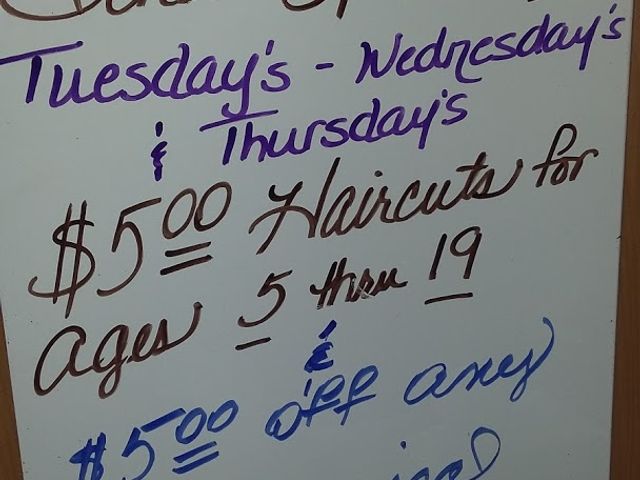 Tuesday's - Wednesday's
& Thursday's
$5.00 Haircuts for
ages 5 thru 19
&
$5.00 off any